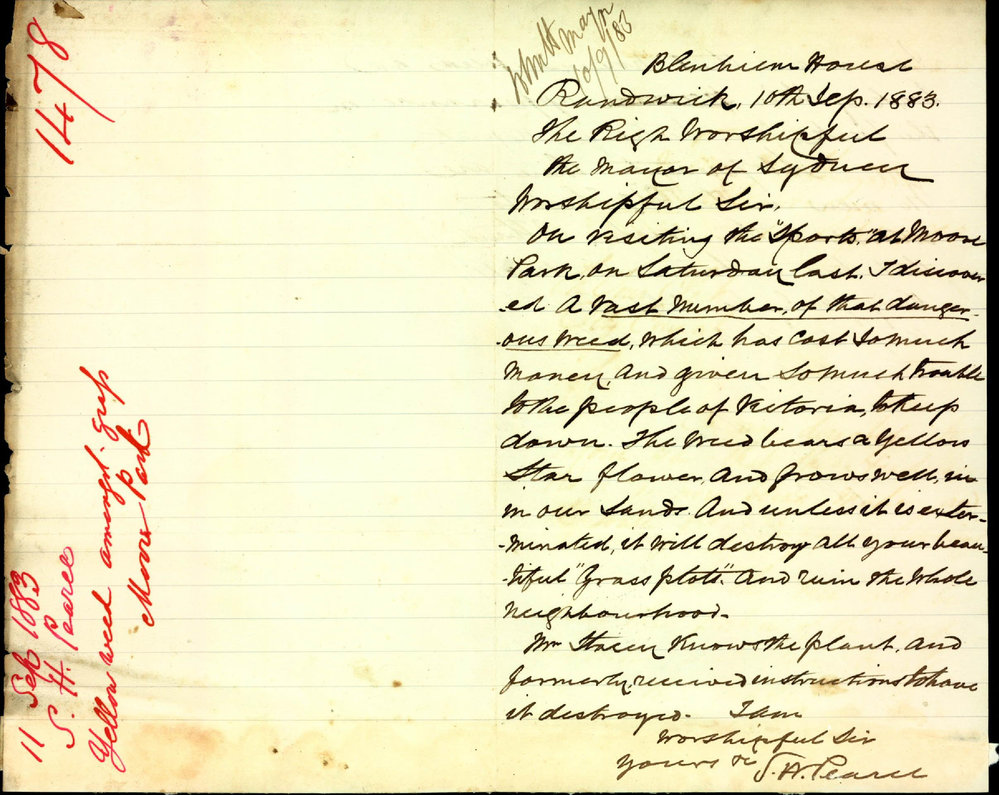 1478
11 Sep 1883
S. H. Pearce
Yellow weed amongst grass
Moore Park
Mayor
10/9/83
Blenhiem House
Randwick, 10th Sep. 1883.
The Righ Worshipful
the Mayor of Sydney
Worshipful Sir,
On visiting the "Sports," at Moore
Park, on Saturday last. I discover
-ed a vast number, of that danger-
-ous weed, which has cost so much
money, and given so much trouble
to the people of Victoria, to keep
down. The weed bears a yellow
star flower, and grows well, in
in our sands. And unless it is exter-
-minated, it will destroy all your beau-
-tiful "Grass plots". And ruin the whole
neighbourhood.
Mr Stacey knows the plant, and
formerly, received instructions to have
it destroyed. I am
Worshipful Sir
Yours &c S. H. Pearce